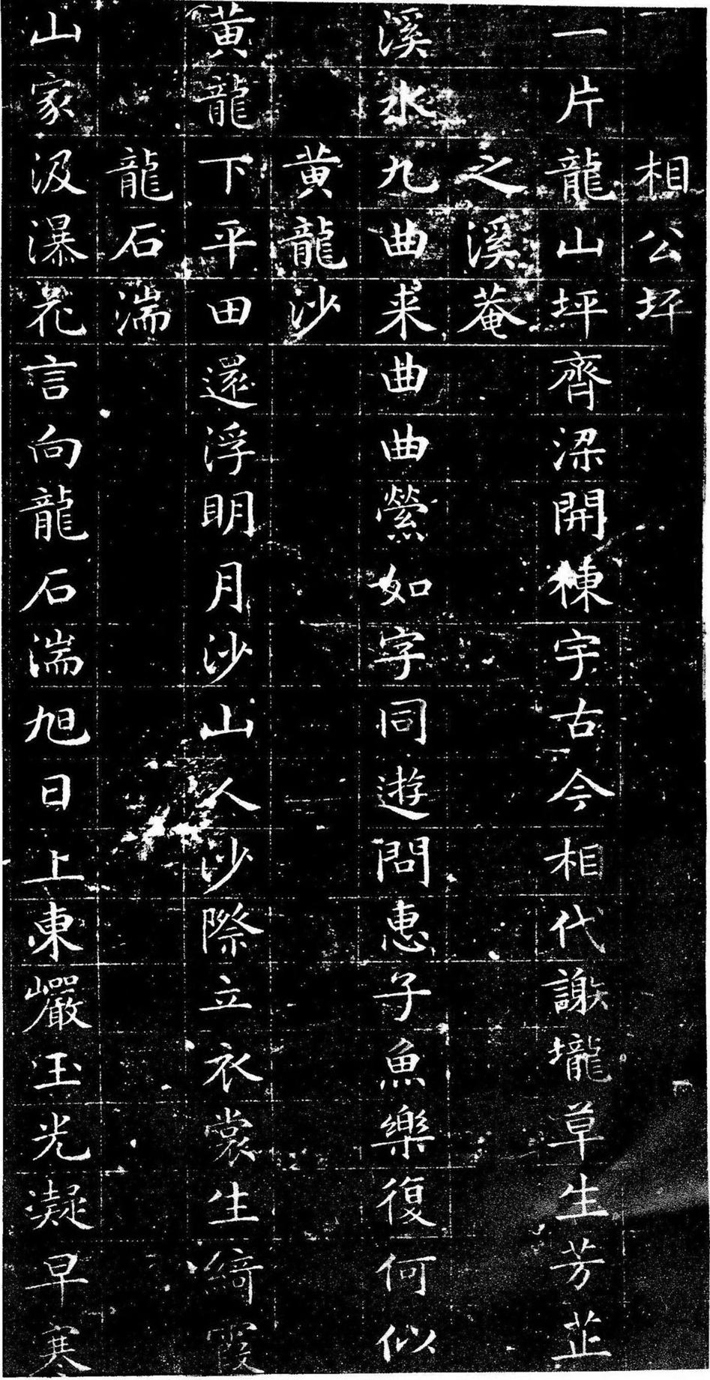 相公坪
一片龍山坪齊梁開棟宇古今相代謝壠草生芳芷
之溪菴
溪水九曲来曲曲縈如字同遊問惠子魚樂復何似
黄龍沙
黄龍下平田還浮明月沙山人沙際立衣裳生綺霞
龍石湍
山家汲瀑花言向龍石湍旭日上東巖玉光凝早寒